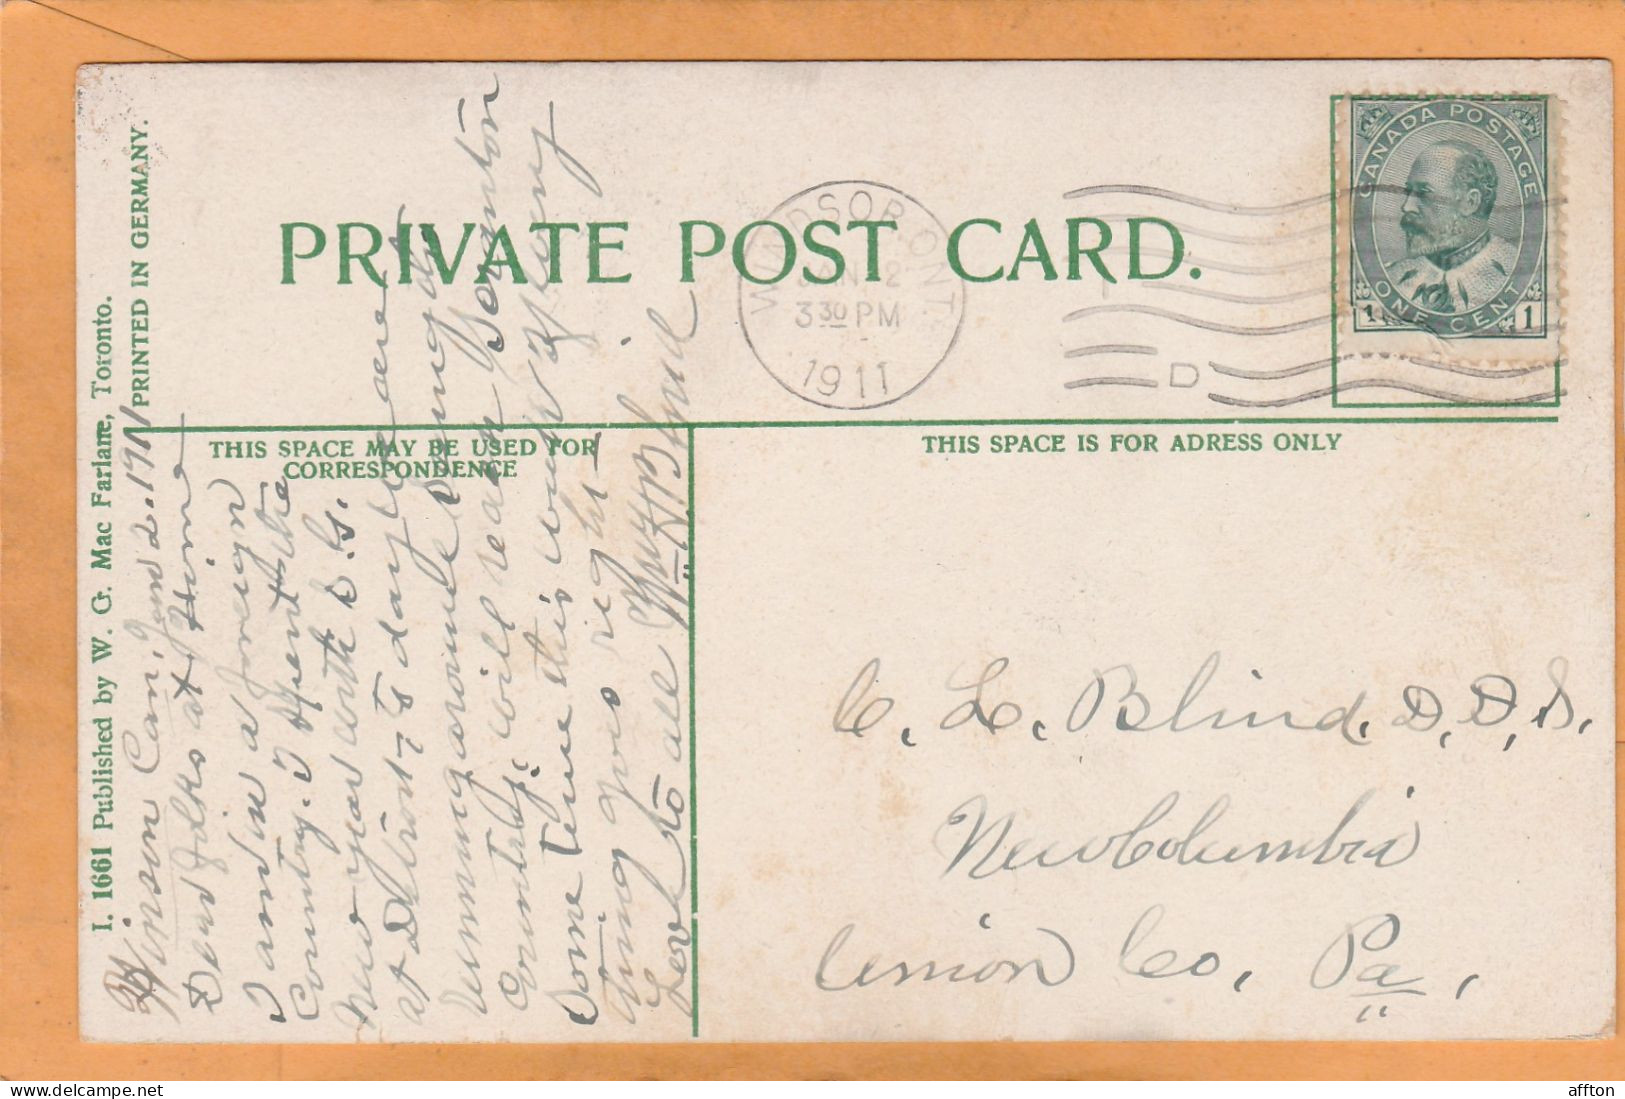 PRIVATE POST CARD.
WINDSOR, ONT.
JAN 2
3 30 PM
1911
D
CANADA POSTAGE
ONE CENT
1 1
THIS SPACE MAY BE USED FOR
CORRESPONDENCE
THIS SPACE IS FOR ADRESS ONLY
I. 1661 Published by W. G. Mac Farlane, Toronto.
PRINTED IN GERMANY.
Can. Jan 2. 1911
Dear folks at Home
I am in a foreign
Country. I spent the
New year with B. G.
at Detroit. To day we are
running around seeing the
Country. will reach Scranton
Some time this week. Every
thing goes right
Love to all
C. L. Blind. D. D. S.
New Columbia
Union Co, Pa,
affton